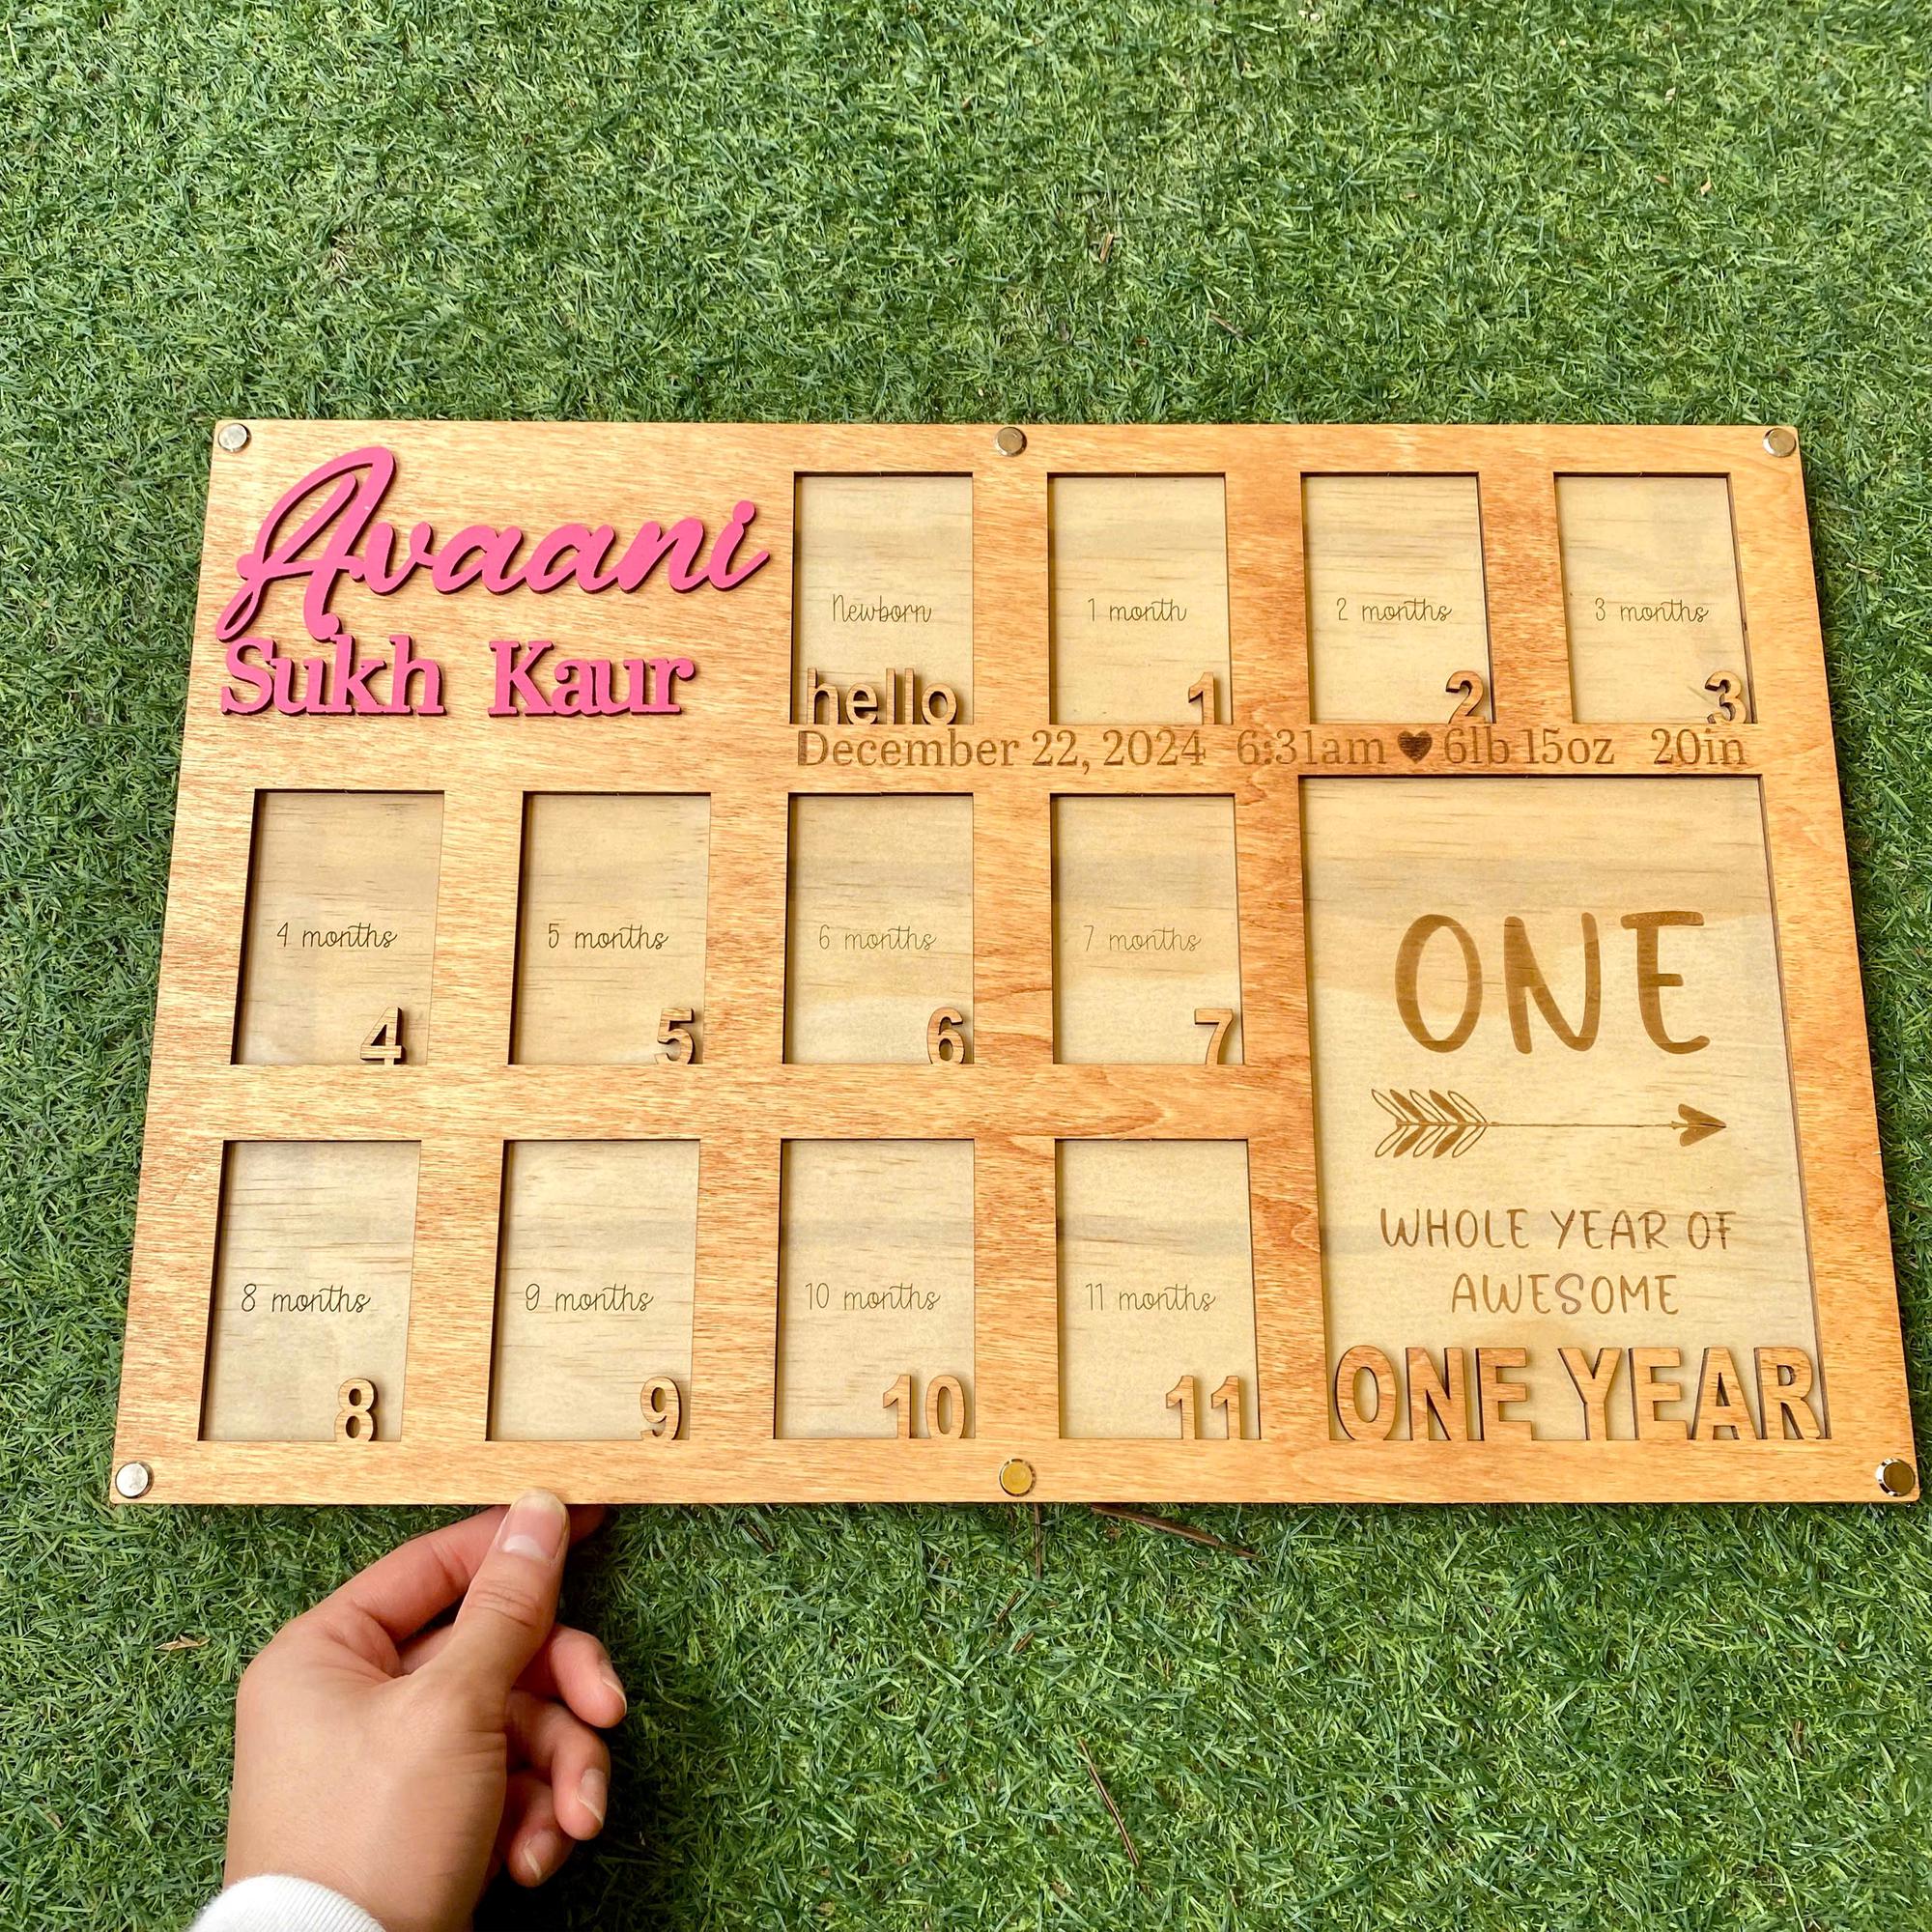 Avaani
Sukh Kaur
Newborn
hello
1 month
1
2 months
2
3 months
3
December 22, 2024 6:31am ♥ 6lb 15oz 20in
4 months
4
5 months
5
6 months
6
7 months
7
8 months
8
9 months
9
10 months
10
11 months
11
ONE
WHOLE YEAR OF
AWESOME
ONE YEAR